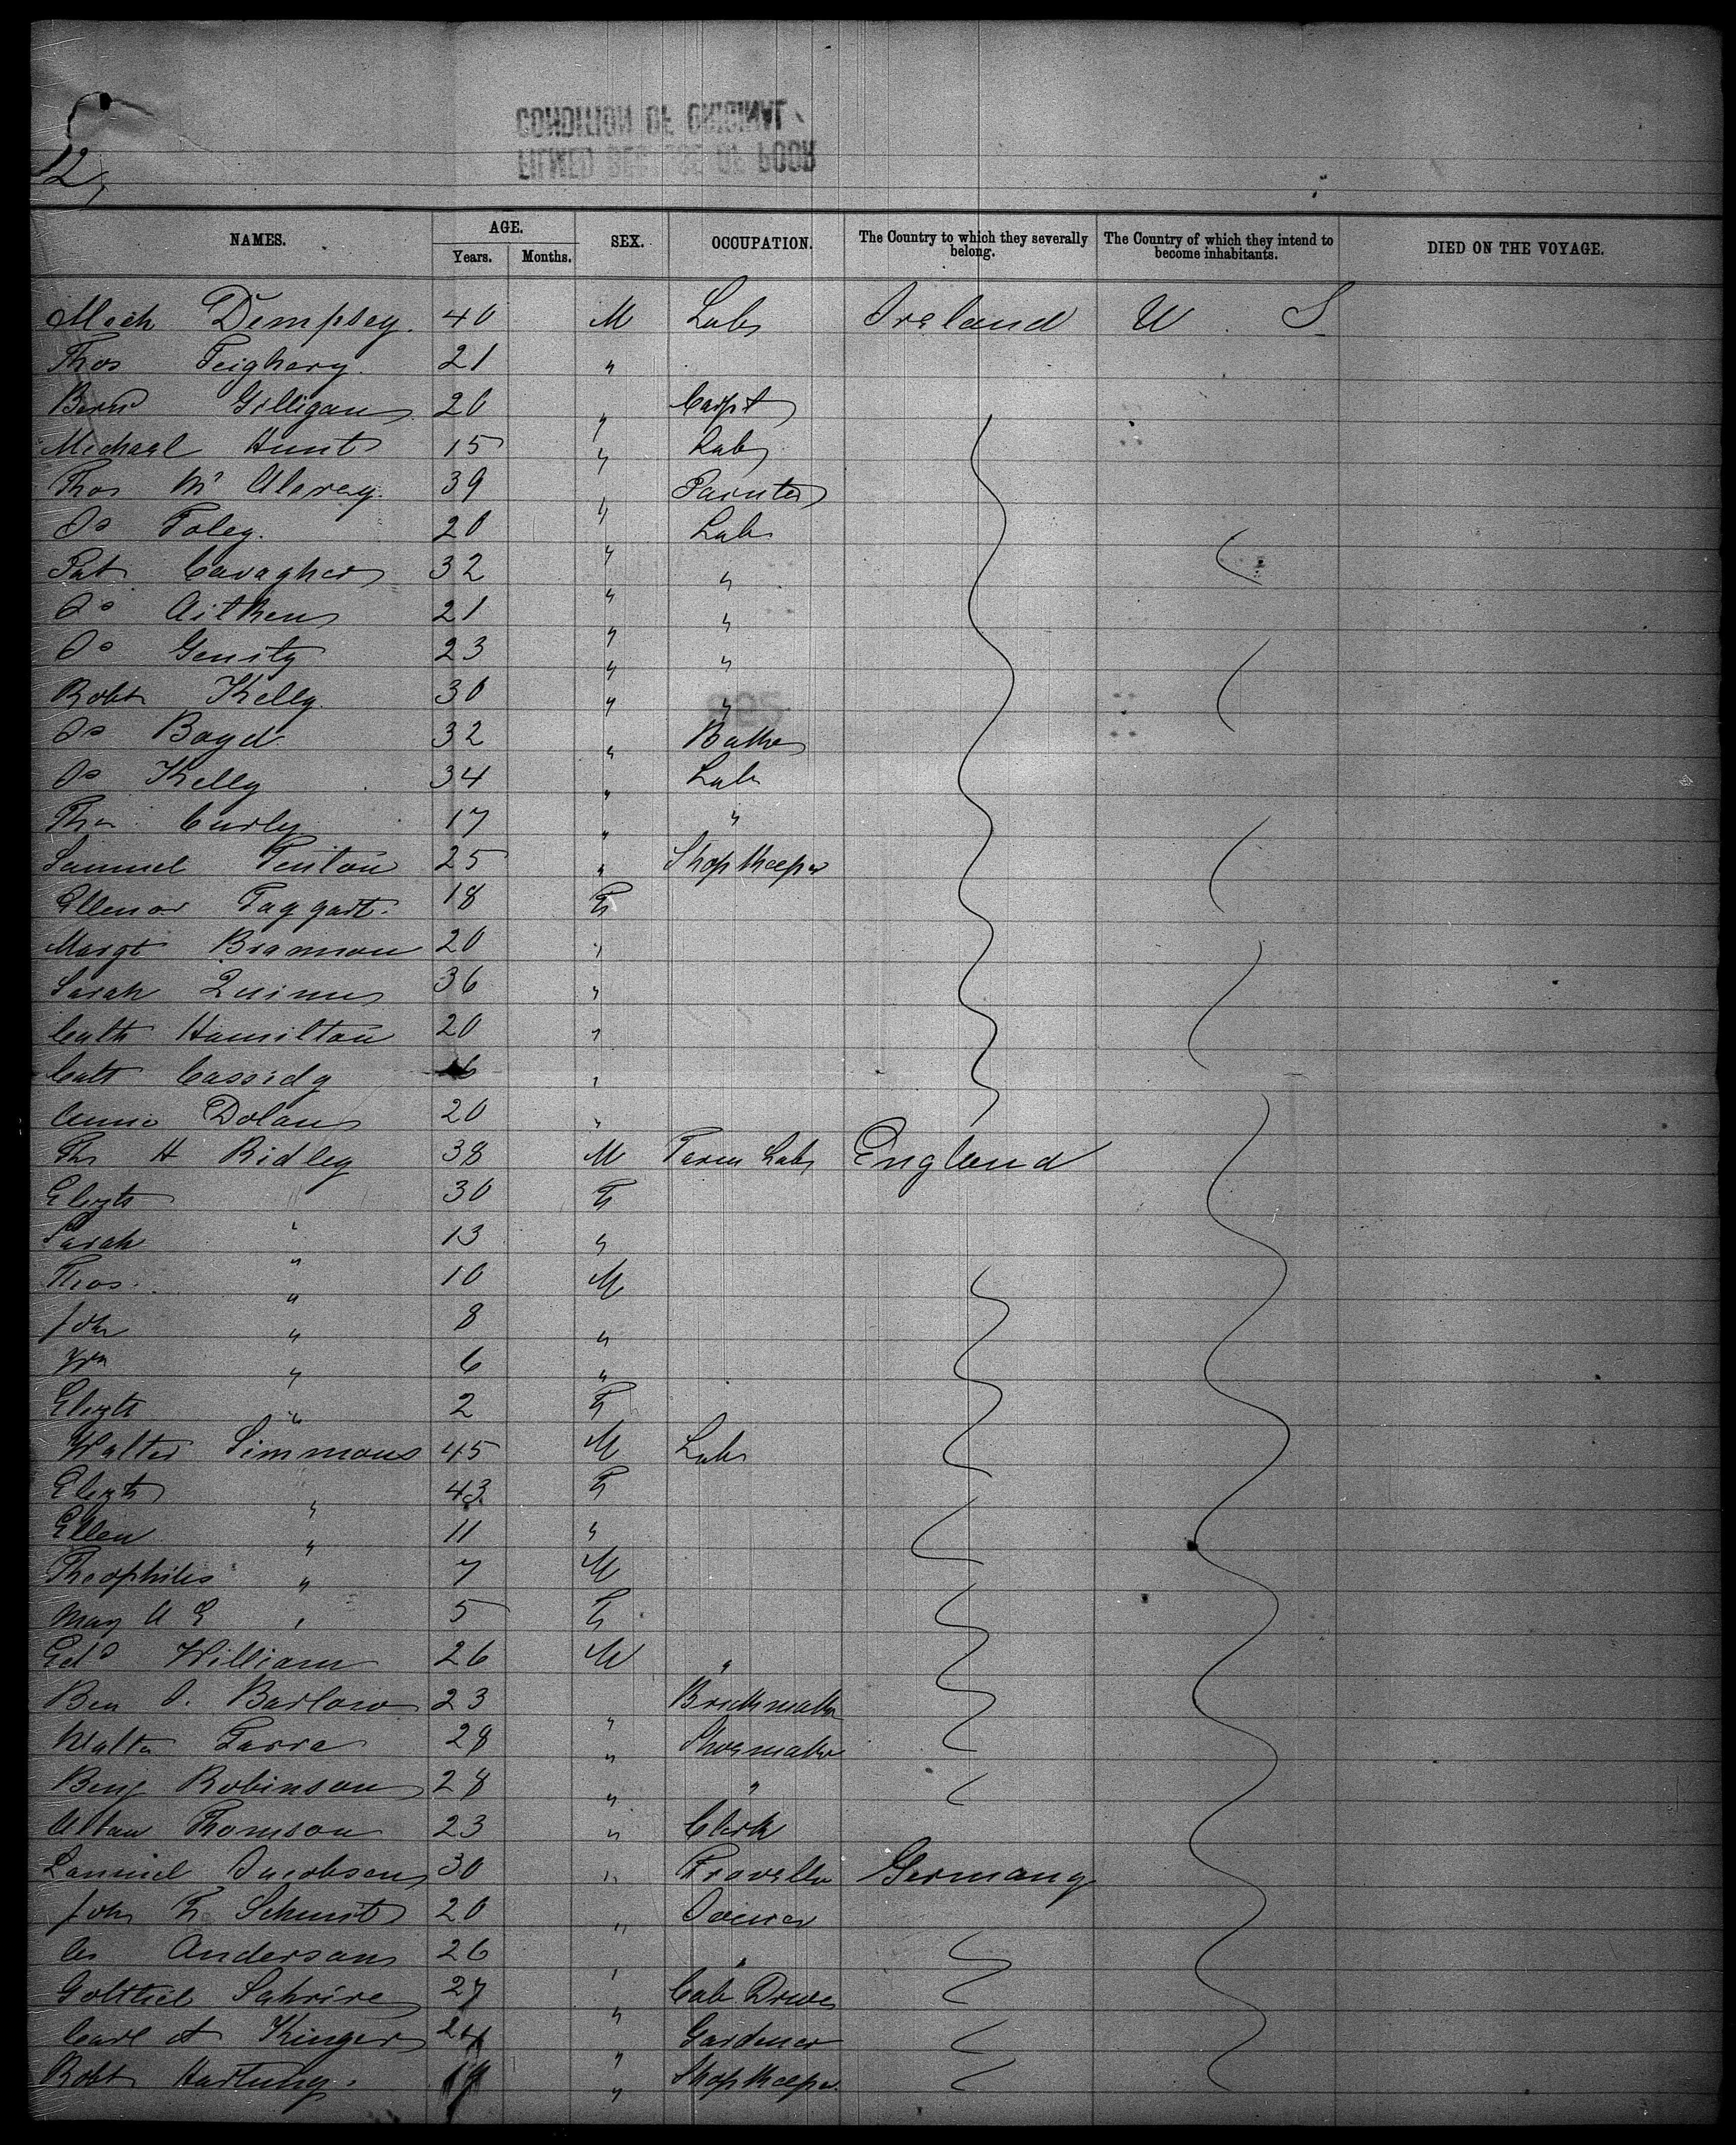 12,
CONDITION OF ORIGINAL
NAMES. AGE. Years. Months. SEX. OCCUPATION. The Country to which they severally belong. The Country of which they intend to become inhabitants. DIED ON THE VOYAGE.
Mich Dempsey. 40 M Lab Ireland U. S
Thos Feighery. 21 "
Bernd Gilligan 20 " Carpt
Michael Hunt 15 " Lab
Thos Mc 39 " Painter
Do Foley. 20 " Lab
Pat Cavagher 32 " "
Do Aitken 21 " "
Do Gensty 23 " "
Robt Kelly 30 " "
Do Boyd 32 " Baker
Do Kelly 34 " Lab
Thos Curly 17 " "
Samuel Fenton 25 " Shop Keeper
Ellenor Taggart. 18 F
Margt Brannon 20 "
Sarah Quinn 36 "
Cath Hamilton 20 "
Cath Cassidy "
Annie Dolan 20 "
Ths H Ridley 38 M Farm Lab England
Elizth " 30 F
Sarah " 13 "
Thos. " 10 M
John " 8 "
Wm " 6 "
Elizth " 2 F
Walter Simmons 45 M Lab
Elizth " 43 F
Ellen " 11 "
Theophiles " 7 M
Mary A E " 5 F
Edd William 26 M "
Ben J. Barlow 23 " Brickmaker
Walter Farra 28 " Shoemaker
Benj Robinson 28 " "
Alban Thomson 23 " Clerk
Samuel Jacobsen 30 " Traveller Germany
John F Schmit 20 " Joiner
Andersson 26 " "
Gottlieb 27 " Cab Driver
Carl A Kinger 24 " Gardener
Robt Hartung. 19 " Shop Keeper.